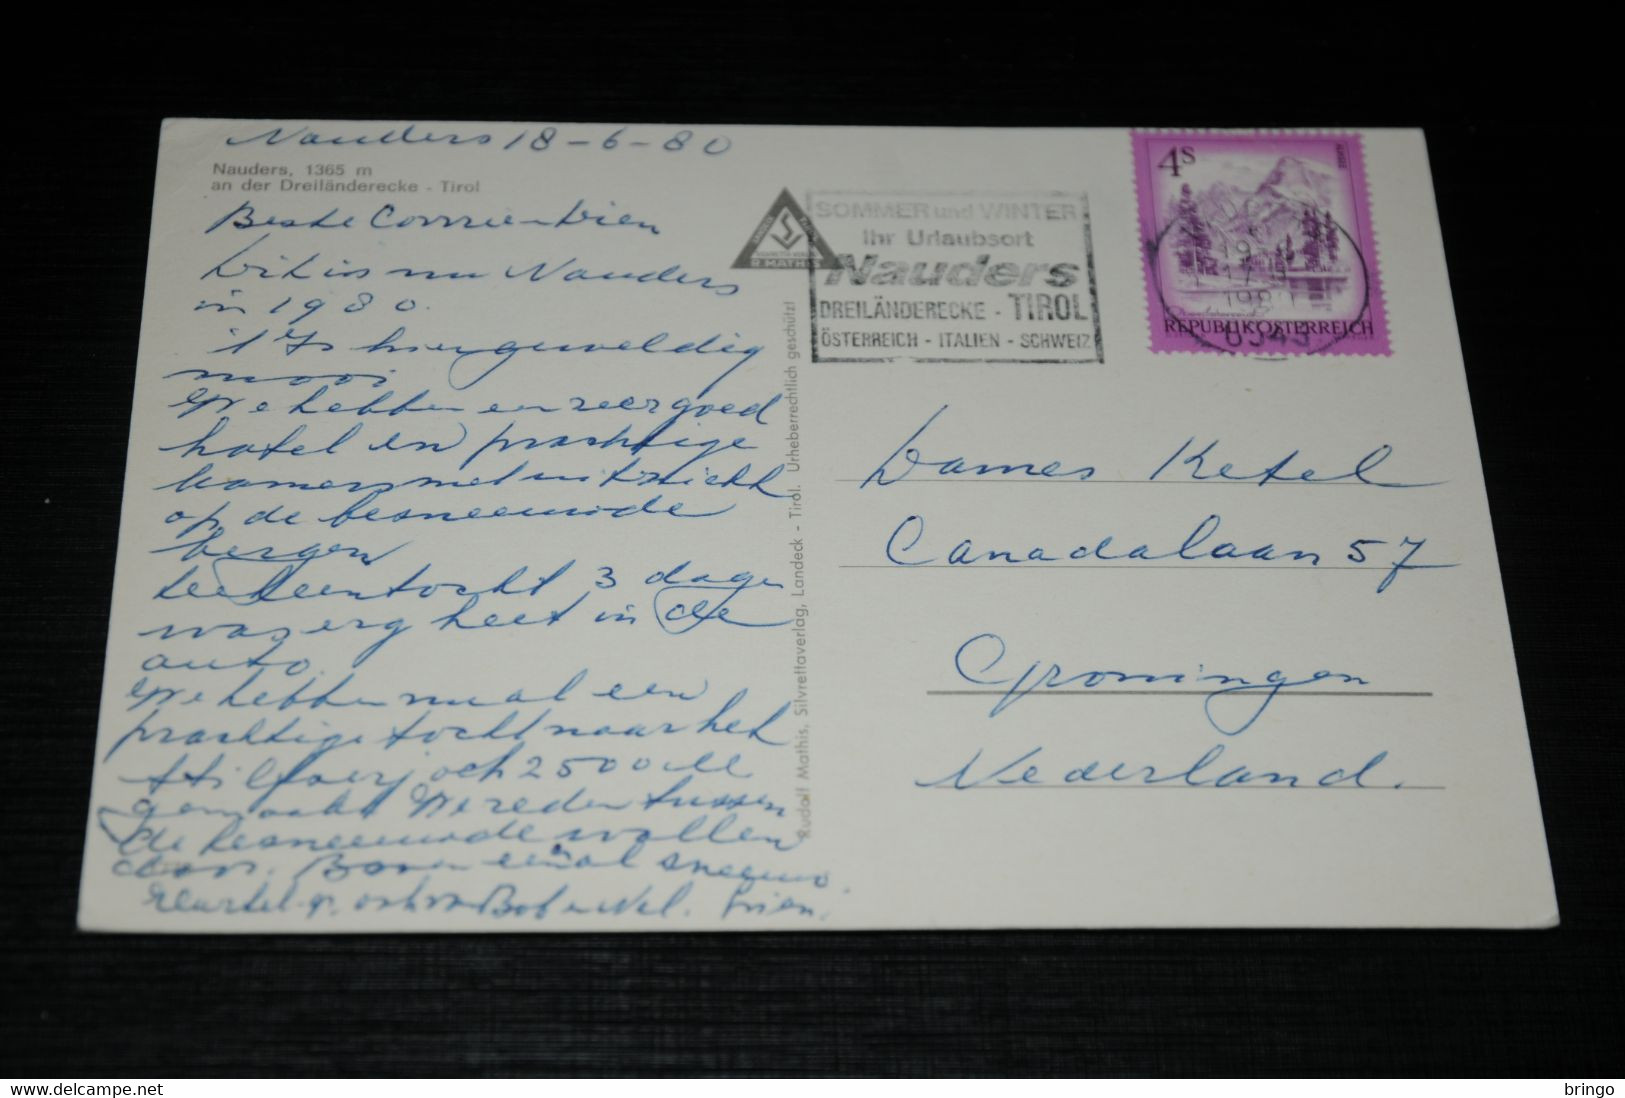 Nauders 18-6-80
Nauders, 1365 m
an der Dreiländerecke - Tirol
Beste Corrie en Dien
Dit is nu Nauders
in 1980.
't Is hier geweldig
mooi
We hebben een zeer goed
hotel en prachtige
kamers met uitzicht
op de besneeuwde
bergen
de heentocht 3 dagen
was erg heet in de
auto.
We hebben al een
prachtige tocht naar het
Stilfserjoch 2500 M
gemaakt We reden tussen
de besneeuwde wallen
door. Boven eeuwige sneeuw.
Hartel. gr. ook van Bob en Nel. Trien.
R. MATHIS
Rudolf Mathis, Silvrettaverlag, Landeck - Tirol. Urheberrechtlich geschützt
SOMMER und WINTER
Ihr Urlaubsort
Nauders
DREILÄNDERECKE - TIROL
ÖSTERREICH - ITALIEN - SCHWEIZ
4S
REPUBLIK ÖSTERREICH
6543
Dames Ketel
Canadalaan 57
Groningen
Nederland.
© For sale on Delcampe.net
bringo